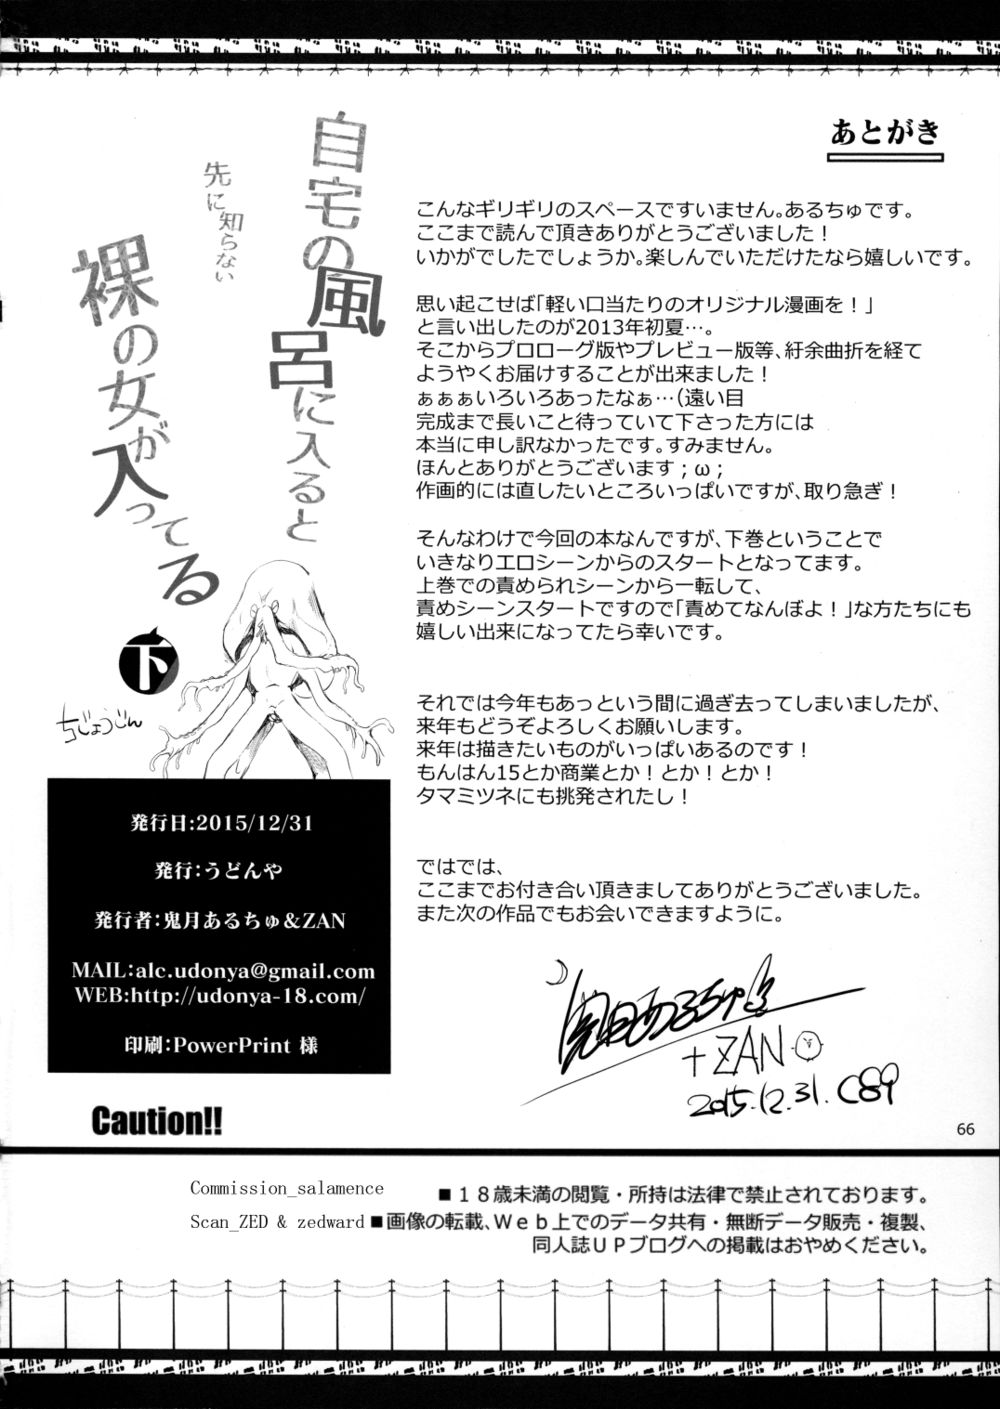 あとがき
こんなギリギリのスペースですいません。あるちゅです。
ここまで読んで頂きありがとうございました！
いかがでしたでしょうか。楽しんでいただけたなら嬉しいです。
思い起こせば「軽い口当たりのオリジナル漫画を！」
と言い出したのが2013年初夏…。
そこからプロローグ版やプレビュー版等、紆余曲折を経て
ようやくお届けすることが出来ました！
ぁぁぁいろいろあったなぁ…（遠い目
完成まで長いこと待っていて下さった方には
本当に申し訳なかったです。すみません。
ほんとありがとうございます；ω；
作画的には直したいところいっぱいですが、取り急ぎ！
そんなわけで今回の本なんですが、下巻ということで
いきなりエロシーンからのスタートとなってます。
上巻での責められシーンから一転して、
責めシーンスタートですので「責めてなんぼよ！」な方たちにも
嬉しい出来になってたら幸いです。
それでは今年もあっという間に過ぎ去ってしまいましたが、
来年もどうぞよろしくお願いします。
来年は描きたいものがいっぱいあるのです！
もんはん15とか商業とか！とか！とか！
タマミツネにも挑発されたし！
ではでは、
ここまでお付き合い頂きましてありがとうございました。
また次の作品でもお会いできますように。
鬼月あるちゅ
+ZAN
2015.12.31. C89
自宅の風呂に入ると
先に知らない
裸の女が入ってる
下
ちじょうじん
発行日:2015/12/31
発行：うどんや
発行者：鬼月あるちゅ＆ZAN
MAIL:alc.udonya@gmail.com
WEB:http://udonya-18.com/
印刷：PowerPrint 様
Caution!!
66
Commission_salamence
Scan_ZED & zedward
■１８歳未満の閲覧・所持は法律で禁止されております。
■画像の転載、Ｗｅｂ上でのデータ共有・無断データ販売・複製、
同人誌ＵＰブログへの掲載はおやめください。